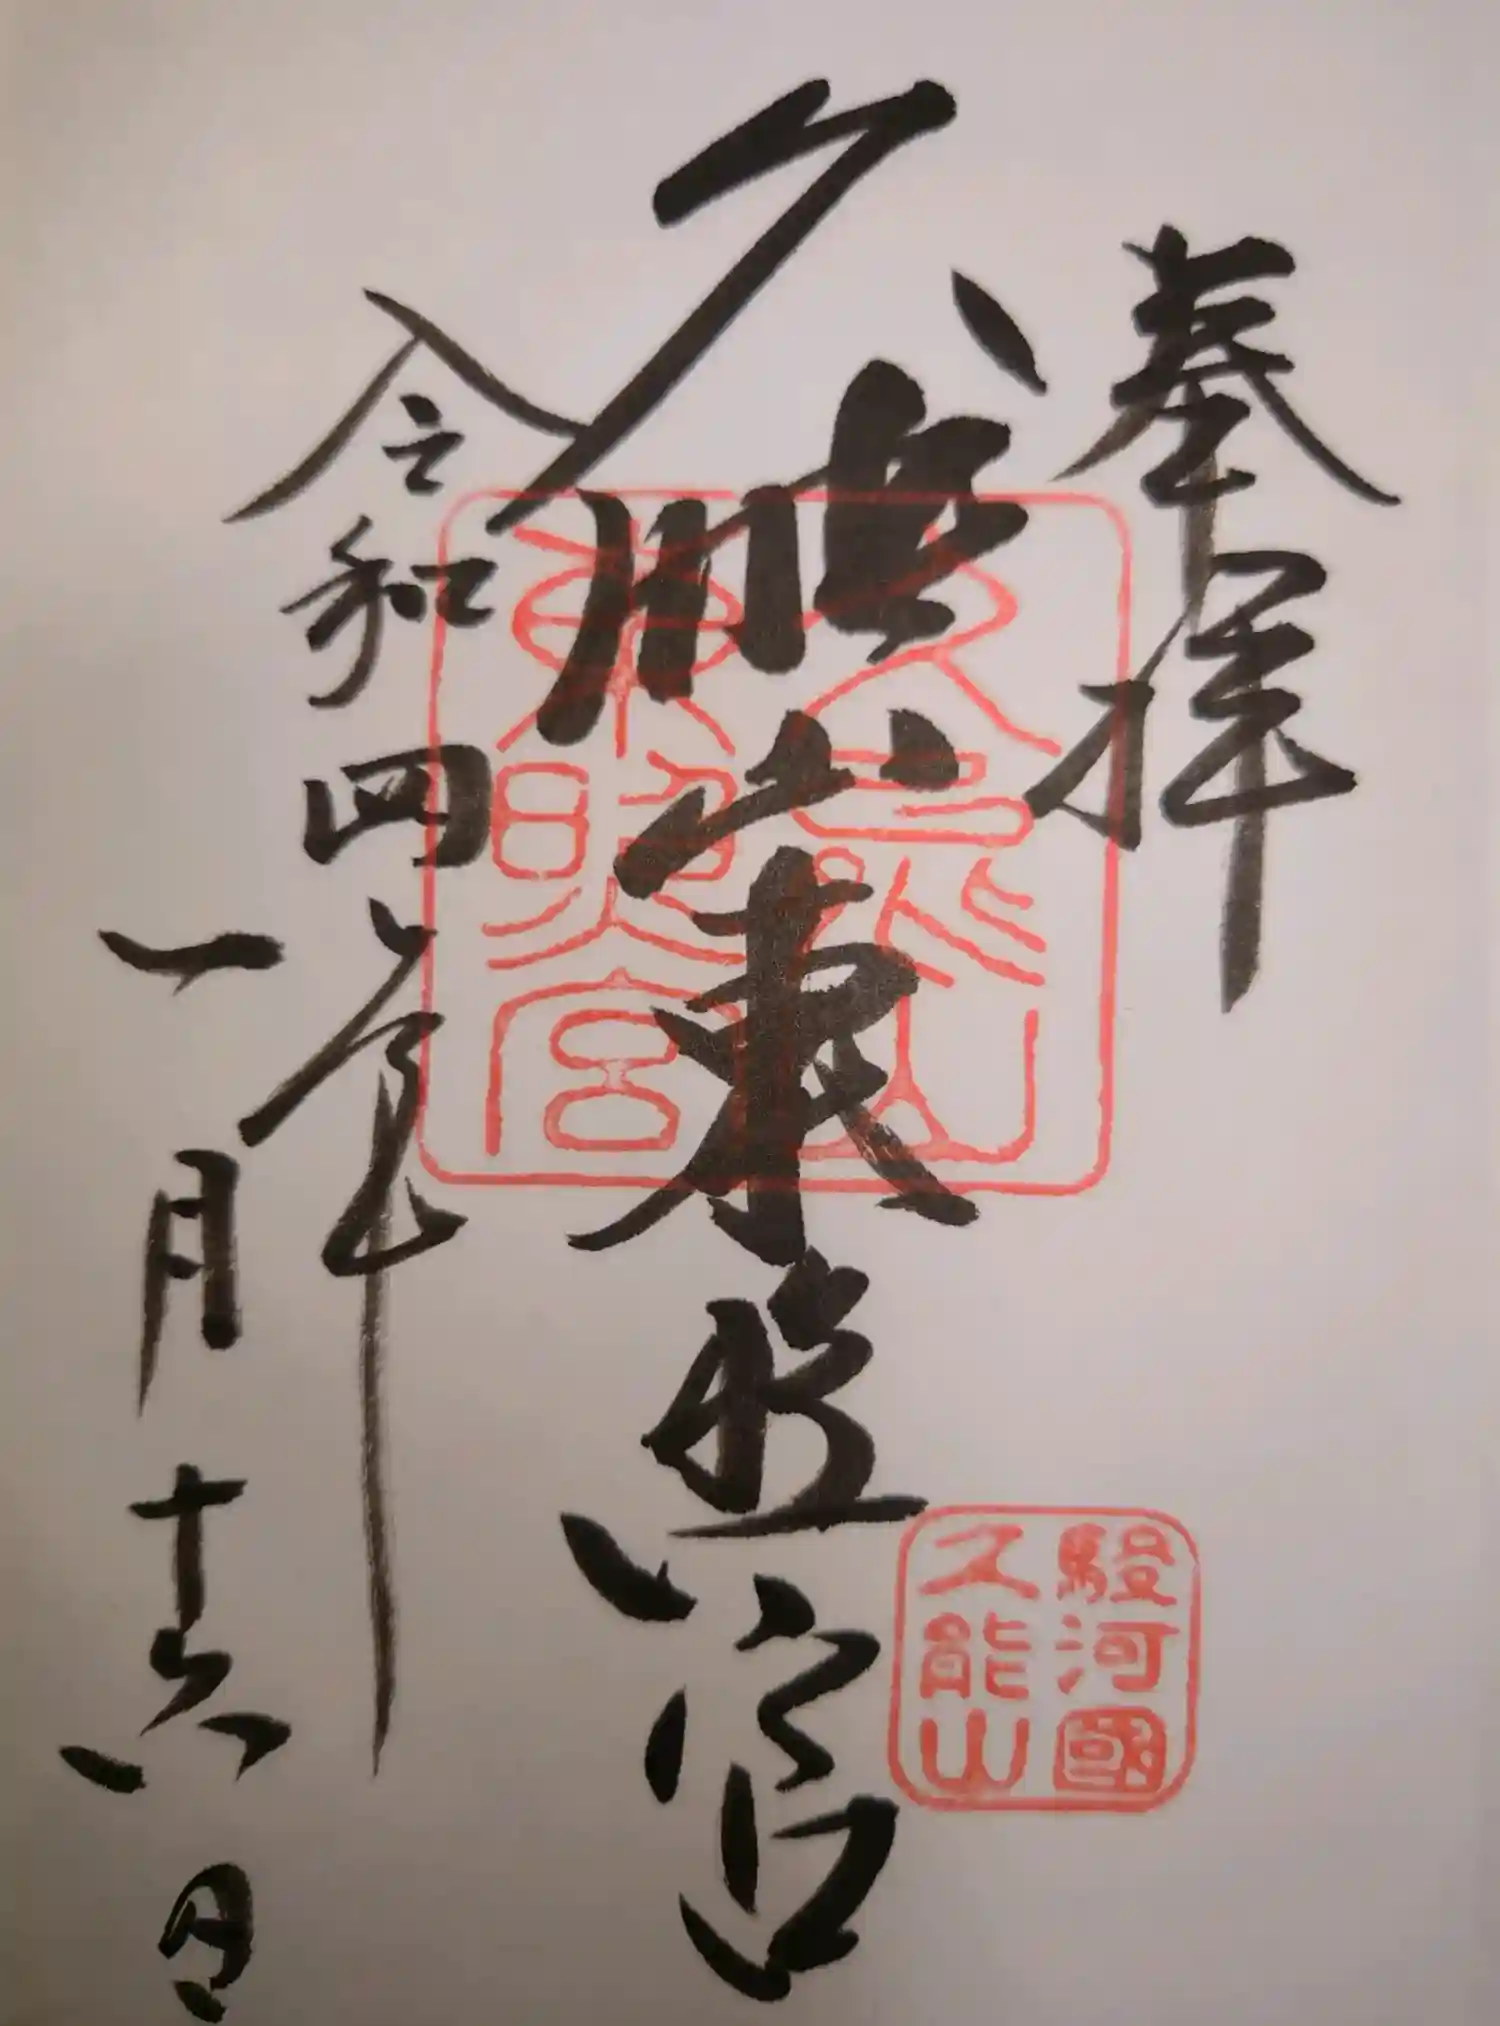 奉拝
久能山東照宮
令和四年
一月十六日
久能山
東照宮
駿河國
久能山